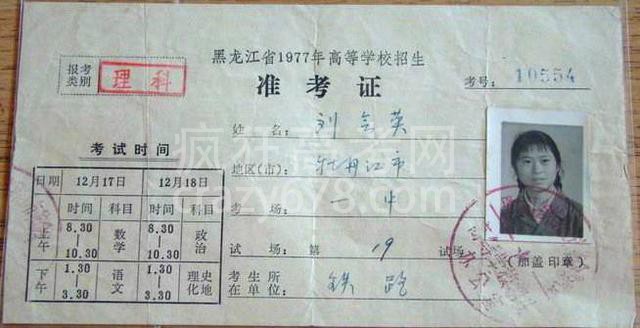 黑龙江省1977年高等学校招生
准考证
报考类别 理科
考号：10554
姓名：刘会英
地区(市)：牡丹江市
考场：一中
试场：第19试场
考生所在单位：铁路
(加盖印章)
考试时间
日期 12月17日 12月18日
时间 科目 时间 科目
上午 8.30—10.30 数学 8.30—10.30 政治
下午 1.30—3.30 语文 1.30—3.30 理化 史地
疯狂高考网